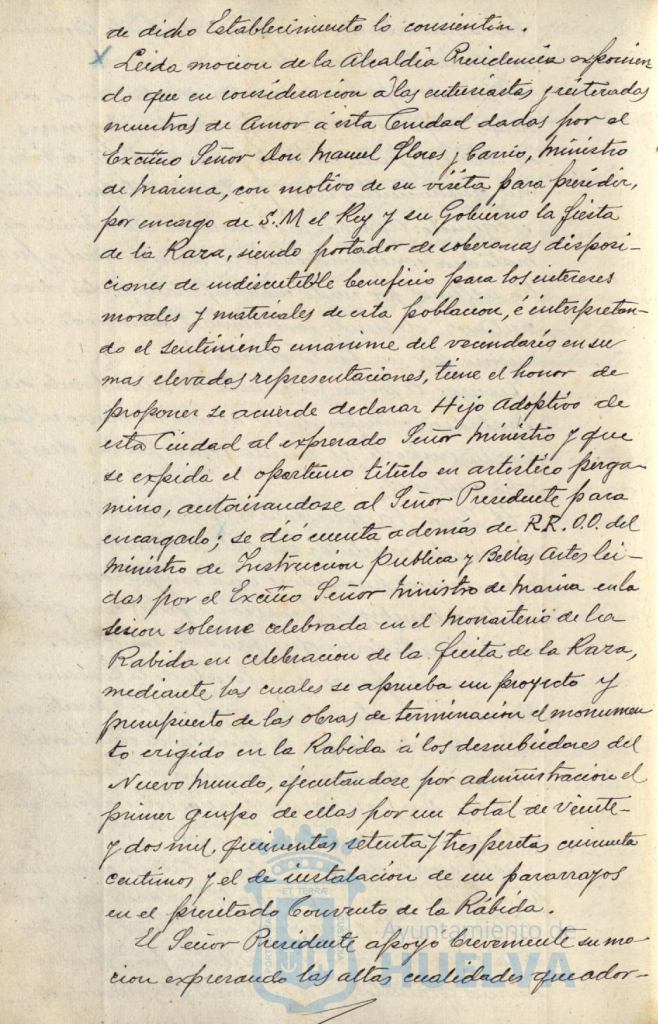 de dicho Establecimiento lo consientin.
Leida mocion de la Alcaldia Presidencia exponien
do que en consideracion á las entusiastas y reiteradas
muestras de Amor á esta Ciudad dadas por el
Excmo Señor Don Manuel Flores y Carrio, Ministro
de Marina, con motivo de su visita para presidir,
por encargo de S.M el Rey y su Gobierno la fiesta
de la Raza, siendo portador de soberanas disposi-
ciones de indiscutible beneficio para los intereses
morales y materiales de esta poblacion, é interpretan-
do el sentimiento unanime del vecindario en su
mas elevadas representaciones, tiene el honor de
proponer se acuerde declarar Hijo Adoptivo de
esta Ciudad al expresado Señor Ministro y que
se expida el oportuno titulo en artistico perga-
mino, autorizandose al Señor Presidente para
encargarlo; se dió cuenta además de R.R.O.O. del
Ministro de Instruccion publica y Bellas Artes lei-
das por el Excmo Señor Ministro de Marina en la
sesion solemne celebrada en el Monasterio de la
Rabida en celebracion de la fiesta de la Raza,
mediante las cuales se aprueba un proyecto y
presupuesto de las obras de terminacion el monumen
to erigido en la Rabida á los descubridores del
Nuevo Mundo, ejecutandose por administracion el
primer grupo de ellas por un total de veinte-
y dos mil, quinientas setenta y tres pesetas cincuenta
centimos y el de instalacion de un pararrayos
en el precitado Convento de la Rábida.
El Señor Presidente apoyo brevemente su mo-
cion expresando las altas cualidades que ador-
ET TERRAE
Ayuntamiento de
HUELVA